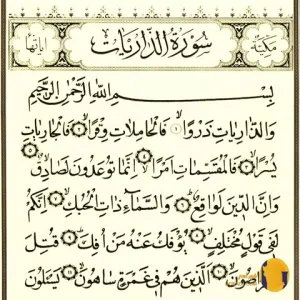 مكية سورة الذاريات آياتها
بسم الله الرحمن الرحيم
والذاريات ذروا فالحاملات وقرا فالجاريات
يسرا فالمقسمات أمرا إنما توعدون لصادق
وإن الدين لواقع والسماء ذات الحبك إنكم
لفي قول مختلف يؤفك عنه من أفك قتل
الذين هم في غمرة ساهون يسئلون